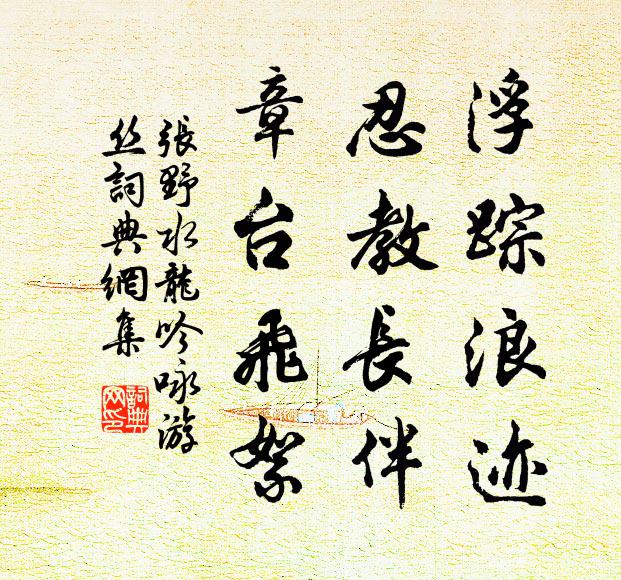 浮踪浪迹
忍教長伴
章台飛絮
張野水龍吟咏游
丝詞典網集
詞典网印